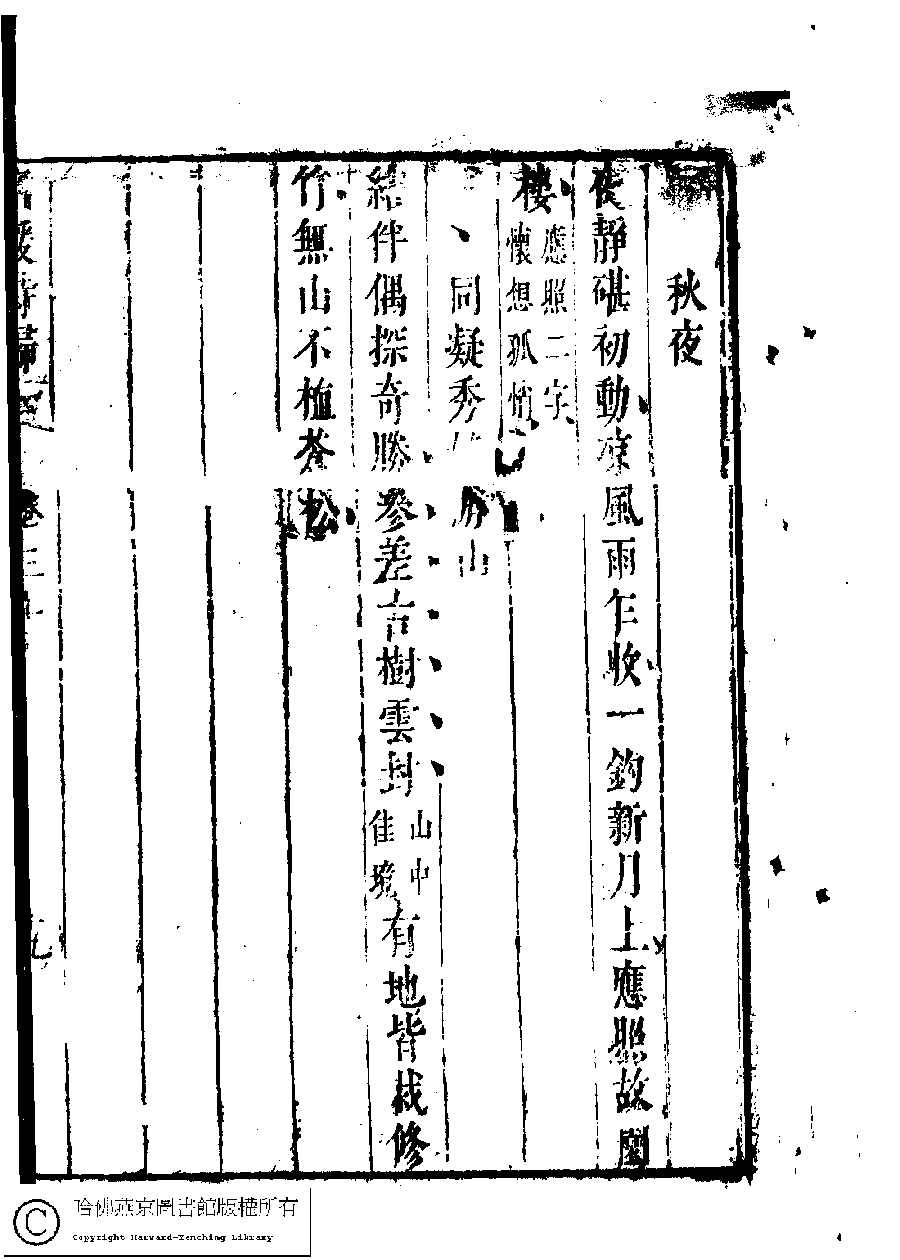 秋夜
夜靜碪初動凉風雨乍收一鈎新月上應照故園
樓應照二字懷想孤悄
同凝秀 游山
結伴偶探奇勝參差古樹雲封山中佳境有地皆栽修
竹無山不植蒼松
名媛詩歸 卷三 九
哈佛燕京圖書館版權所有
Copyright Harvard-Yenching Library